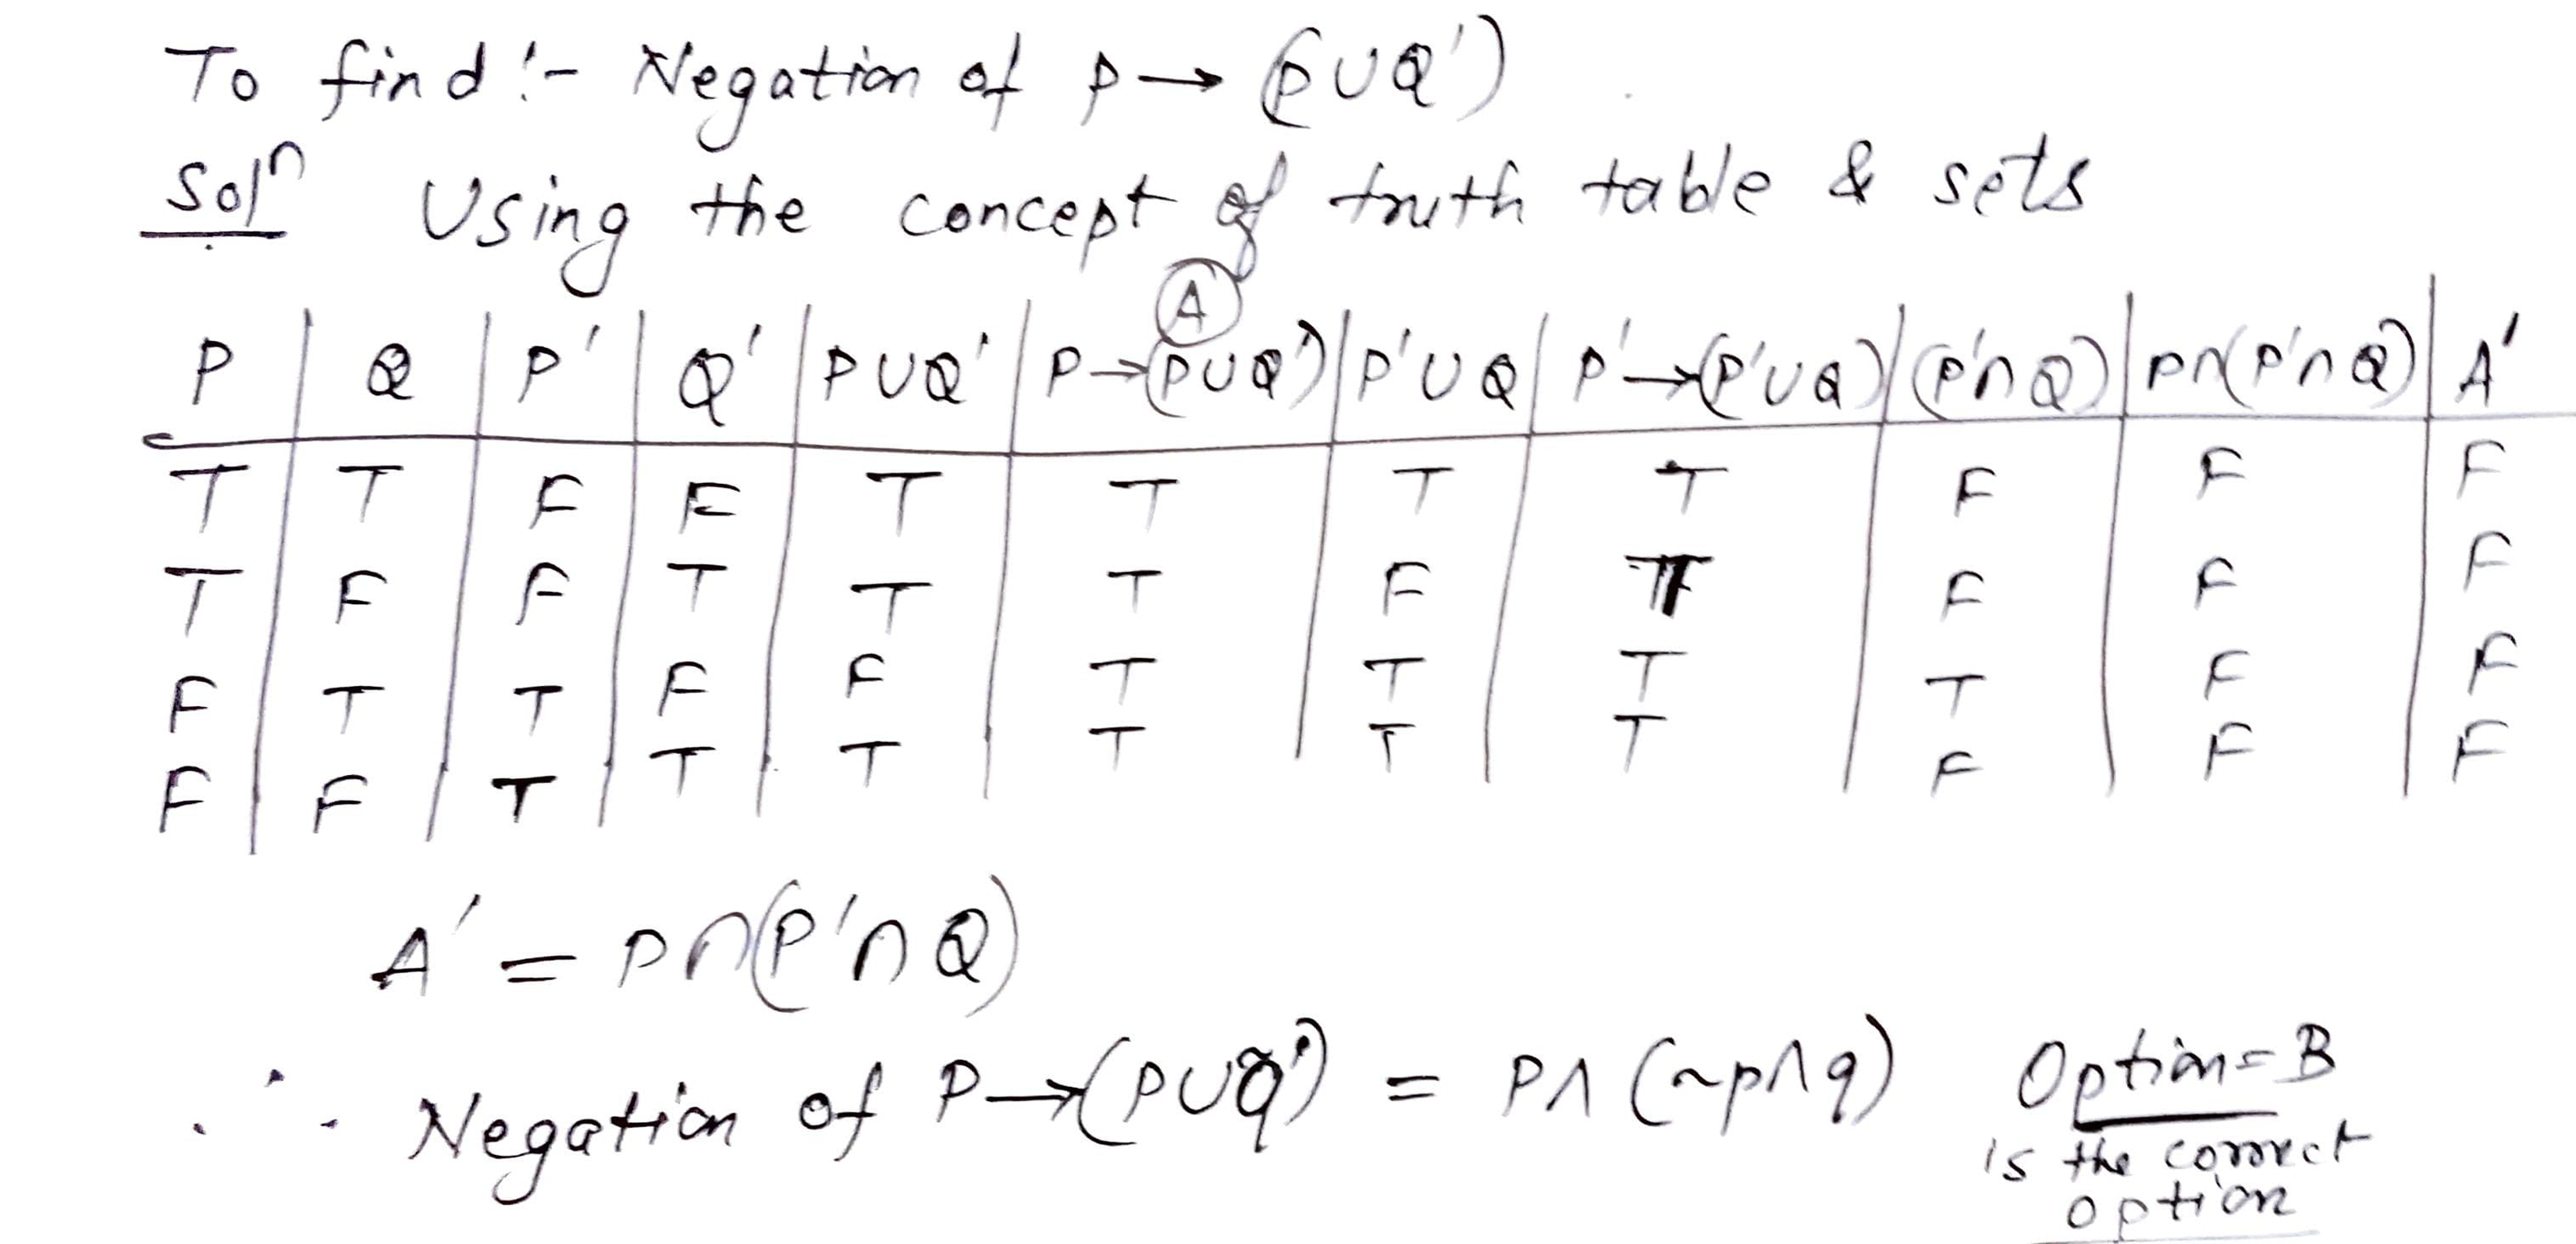 To find :- Negation of p → (p ∪ Q')
Solⁿ Using the concept of truth table & sets
A
P | Q | P' | Q' | P∪Q' | P→(P∪Q') | P'∪Q | P'→(P'∪Q) | (P'∩Q) | P∩(P'∩Q) | A'
T | T | F | F | T | T | T | T | F | F | F
T | F | F | T | T | T | F | T | F | F | F
F | T | T | F | F | T | T | T | T | F | F
F | F | T | T | T | T | T | T | F | F | F
A' = P∩(P'∩Q)
∴ Negation of P→(P∪~q') = P∧(~p∧q) Option = B
is the correct
option